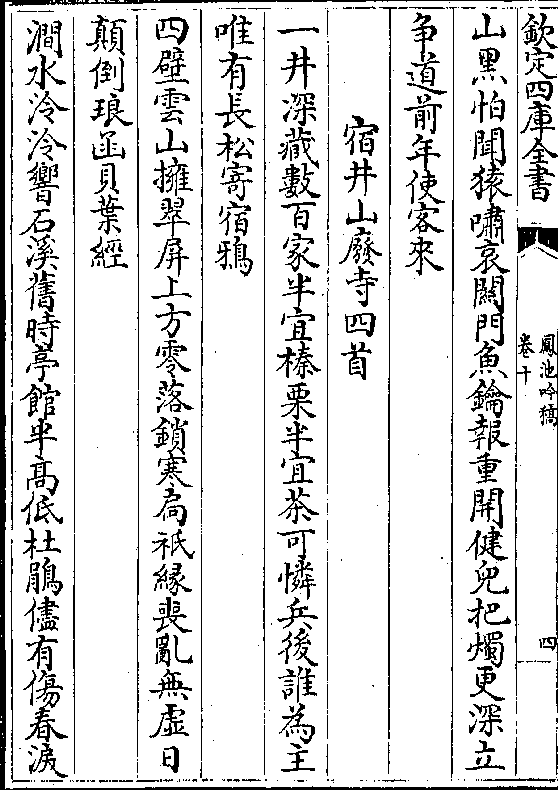 欽定四庫全書
鳳池吟稿
卷十
四
山黑怕聞猿嘯哀關門魚鑰報重開健兒把燭更深立
争道前年使客來
宿井山廢寺四首
一井深藏數百家半宜榛栗半宜茶可憐兵後誰為主
唯有長松寄宿鴉
四壁雲山擁翠屏上方零落鎖寒扃祗緣喪亂無虛日
顛倒琅函貝葉經
澗水泠泠響石溪舊時亭館半髙低杜鵑儘有傷春淚